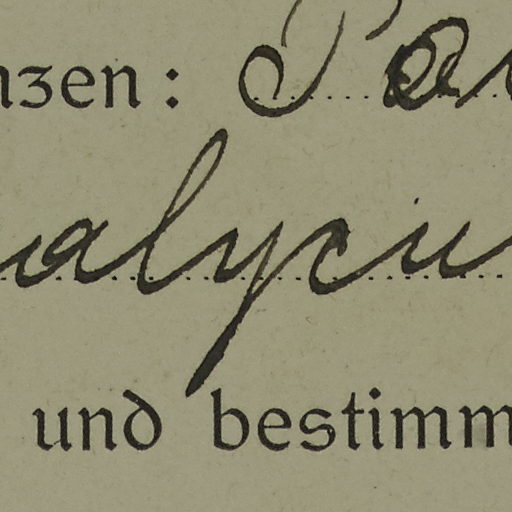 nzen: Pa
alycu
und bestimm